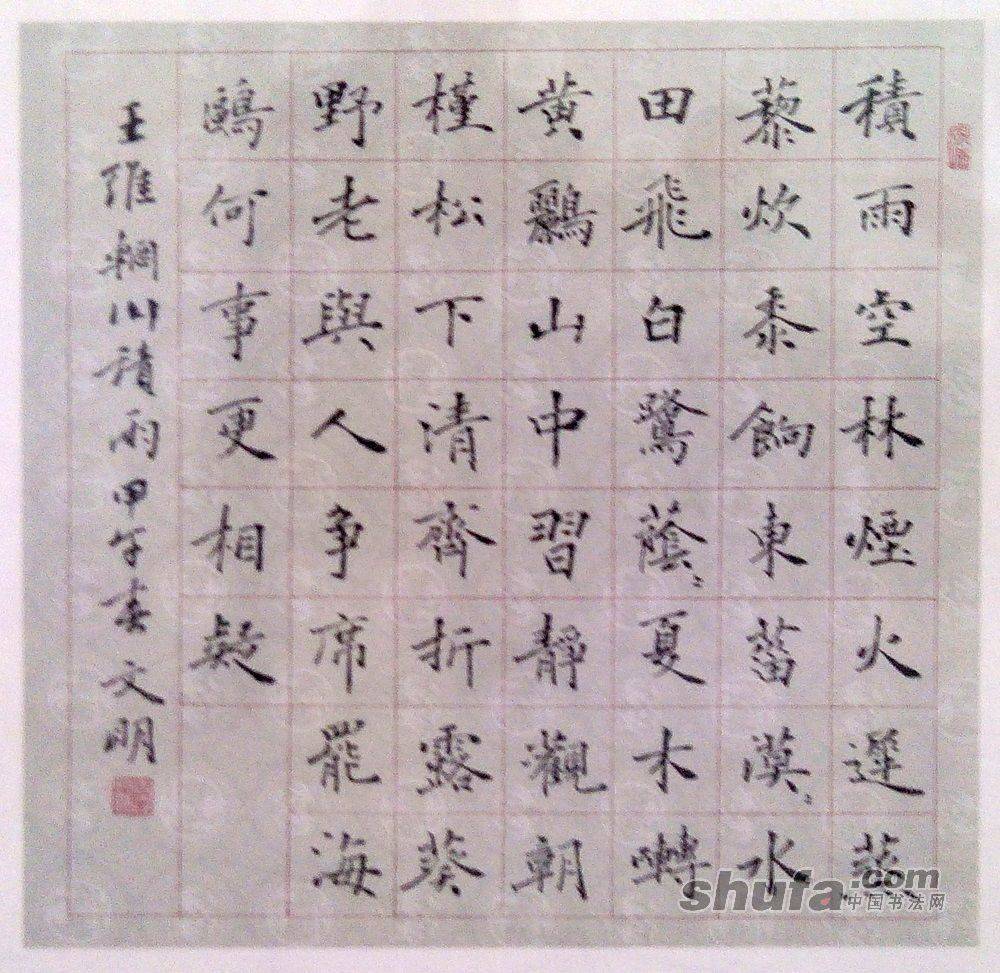 積雨空林煙火遲蒸
藜炊黍餉東菑漠〻水
田飛白鷺蔭〻夏木囀
黄鸝山中習靜觀朝
槿松下清齋折露葵
野老與人争席罷海
鷗何事更相疑
王維輞川積雨甲午春文明
shufa.com
中国书法网